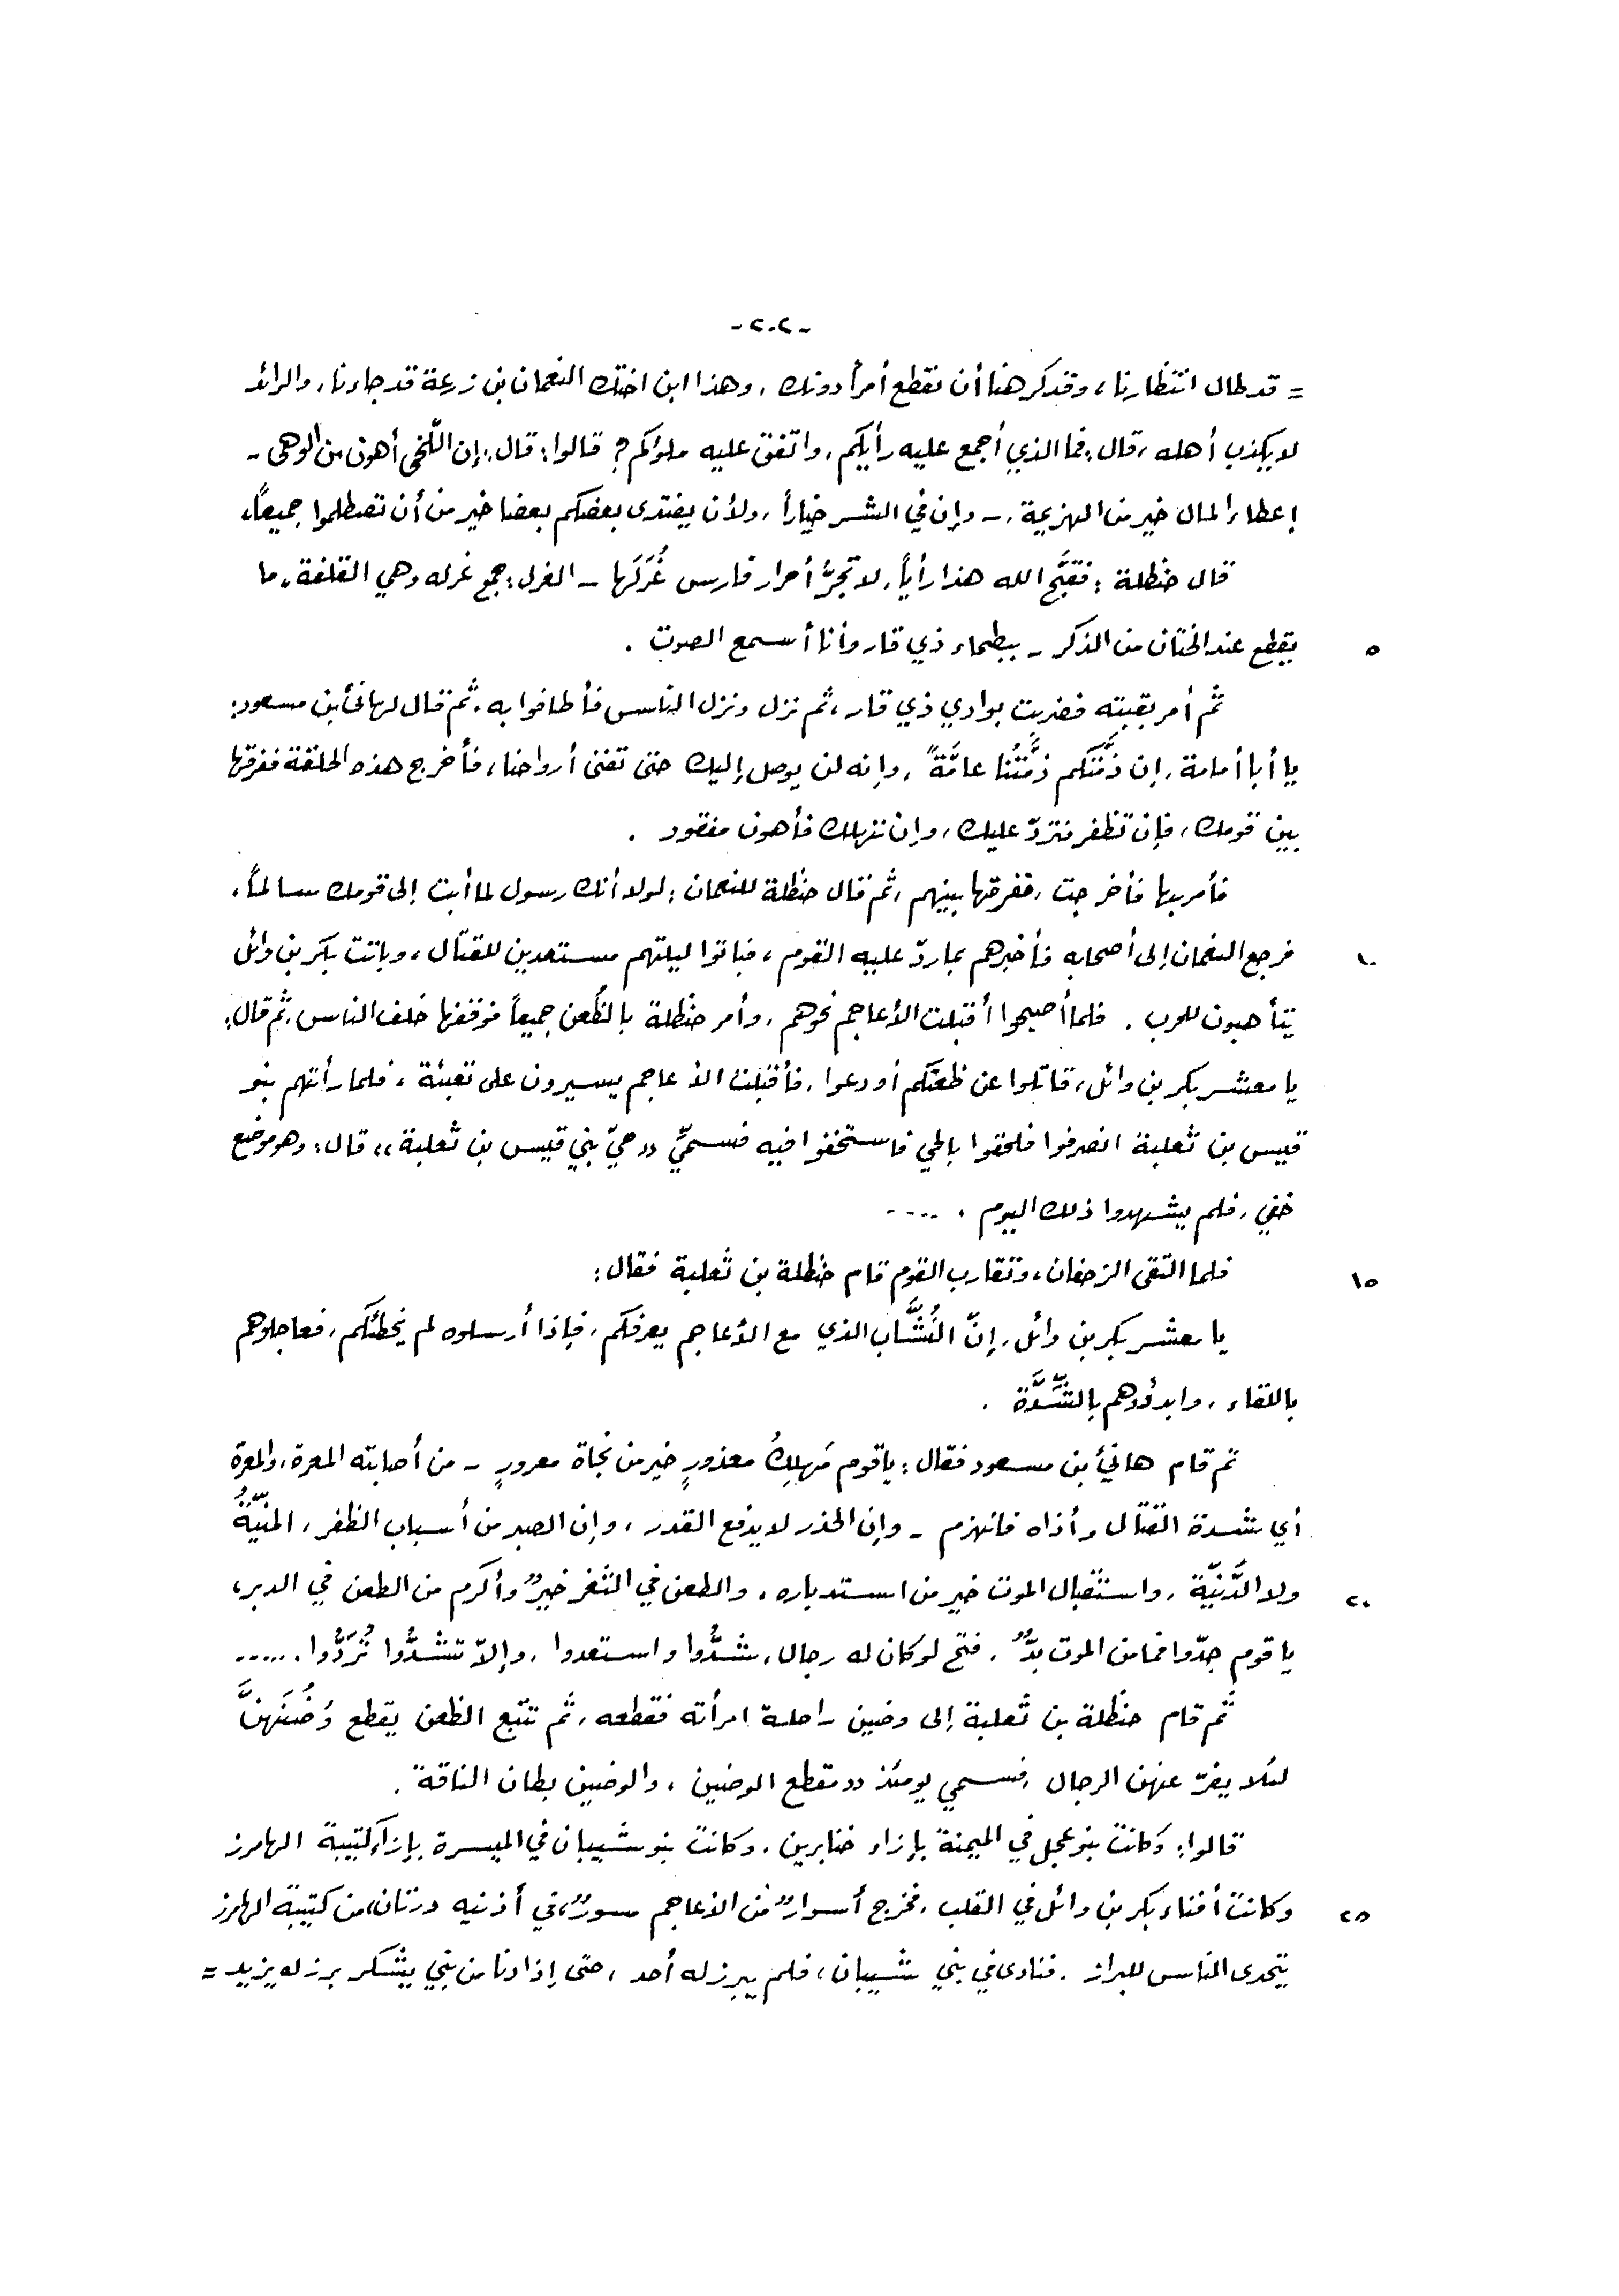 -٢٠٢-
= قد طال انتظارنا، وقد كرهنا أن نقطع أمراً دونك، وهذا ابن اختك النعمان بن زرعة قد جاءنا، والرائد
لا يكذب أهله، قال: فما الذي أجمع عليه رأيكم، واتفق عليه ملؤكم؟ قالوا: قال: إن اللّخي أهون من الوهي -
إعطاء المال خير من الهزيمة، - وإن في الشر خياراً، ولأن يفتدى بعضكم بعضا خير من أن تصطلموا جميعاً،
قال حنظلة: فقبَّح الله هذا رأياً، لا تجرُّ أحرار فارس غُرَلَها - الغرل: جمع غرله وهي القلفة، ما
٥ يقطع عند الختان من الذكر - ببطحاء ذي قار وأنا أسمع الصوت .
ثم أمر بقبته فضربت بوادي ذي قار، ثم نزل ونزل الناس فأطافوا به، ثم قال لهانئ بن مسعود:
يا أبا أمامة، إن ذمَّتكم ذمَّتُنا عامَّةً، وإنه لن يوصل إليك حتى تفنى أرواحنا، فأخرج هذه الحلقة ففرقها
بين قومك، فإن تظفر فتردّ عليك، وإن تهلك فأهون مفقود .
فأمر بها فأخرجت، ففرقها بينهم، ثم قال حنظلة للنعمان: لولا أنك رسول لما أبت إلى قومك سالماً،
١٠ فرجع النعمان إلى أصحابه فأخبرهم بما ردّ عليه القوم، فباتوا ليلتهم مستعدين للقتال، وباتت بكر بن وائل
يتأهبون للحرب . فلما أصبحوا أقبلت الأعاجم نحوهم، وأمر حنظلة بالظُعن جميعاً فوقفها خلف الناس، ثم قال:
يا معشر بكر بن وائل، قاتلوا عن ظعنكم أو دعوا، فأقبلت الأعاجم يسيرون على تعبئة، فلما رأتهم بنو
قيس بن ثعلبة انصرفوا فلحقوا بالحي فاستخفوا فيه فسمّي «حيّ بني قيس بن ثعلبة» قال: وهو موضع
خفي، فلم يشهدوا ذلك اليوم . ....
١٥ فلما التقى الزحفان، وتقارب القوم قام حنظلة بن ثعلبة فقال:
يا معشر بكر بن وائل، إنّ النُشَّاب الذي مع الأعاجم يعرفكم، فإذا أرسلوه لم يخطئكم، فعاجلوهم
باللقاء، وابدؤوهم بالشَّدَّة .
ثم قام هانئ بن مسعود فقال: يا قوم مَهلِكُ معذورٍ خير من نجاة معرورٍ - من أصابته المعرة، والمعرة
أي شدة القتال وأذاه فانهزم - وإن الحذر لا يدفع القدر، وإن الصبر من أسباب الظفر، المنيّةُ
٢٠ ولا الدَّنيّة، واستقبال الموت خير من استدباره، والطعن في الثغر خيرٌ وأكرم من الطعن في الدبر،
يا قوم جدّوا فما من الموت بدٌّ، فتح لو كان له رجال، شدُّوا واستعدوا، وإلاّ تشدُّوا تُرَدُّوا. .....
ثم قام حنظلة بن ثعلبة إلى وضين راحلة امرأته فقطعه، ثم تتبع الظعن يقطع وُضُنَهنَّ
لئلا يفرّ عنهن الرجال، فسمي يومئذ «مقطع الوضين، والوضين بطان الناقة.
قالوا: وكانت بنو عجل في الميمنة بإزاء خنابرين، وكانت بنو شيبان في الميسرة بإزاء كتيبة الهامرز
٢٥ وكانت أفناء بكر بن وائل في القلب، فخرج أسوارٌ من الأعاجم مسورٌ، في أذنيه درتان، من كتيبة الهامرز
يتحدى الناس للبراز، فنادى في بني شيبان، فلم يبرز له أحد، حتى إذا دنا من بني يشكر برز له يزيد =